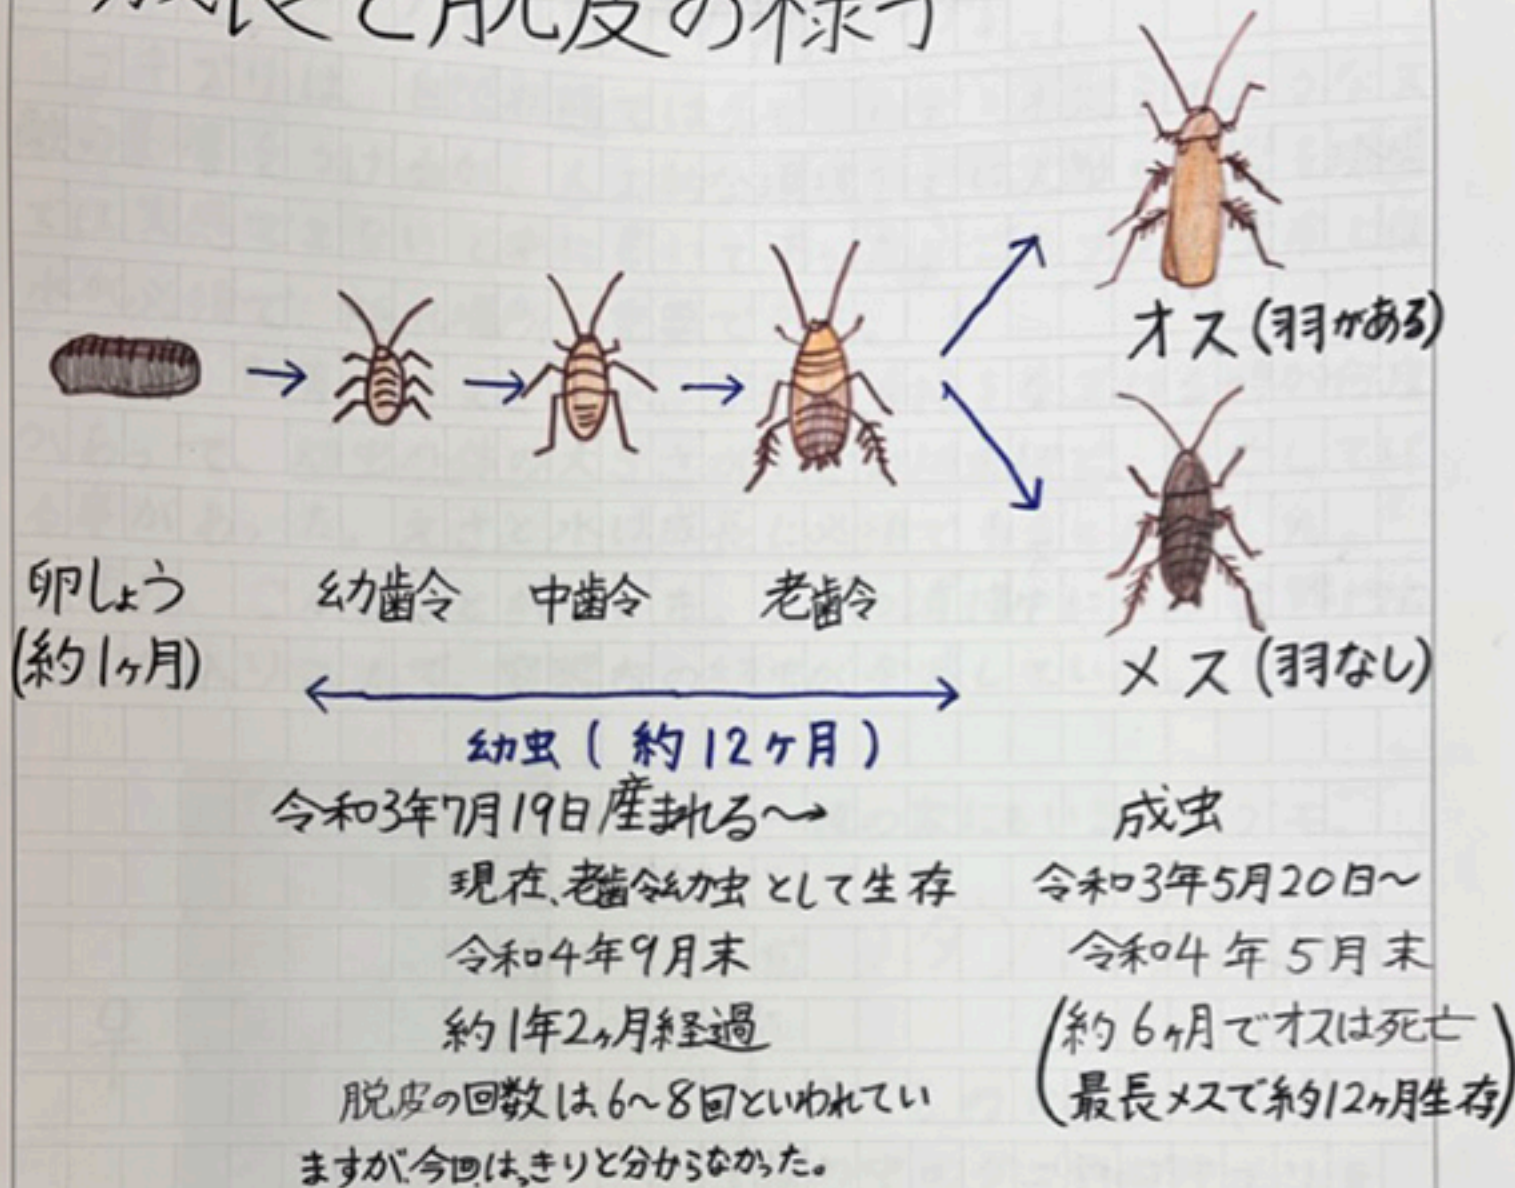 成長と脱皮の様子
オス(羽がある)
卵しょう
(約1ヶ月)
幼齢
中齢
老齢
メス(羽なし)
幼虫(約12ヶ月)
令和3年7月19日産まれる〜→
現在、老齢幼虫として生存
令和4年9月末
約1年2ヶ月経過
脱皮の回数は、6〜8回といわれてい
ますが、今回はっきりと分からなかった。
成虫
令和3年5月20日〜
令和4年5月末
(約6ヶ月でオスは死亡
最長メスで約12ヶ月生存)